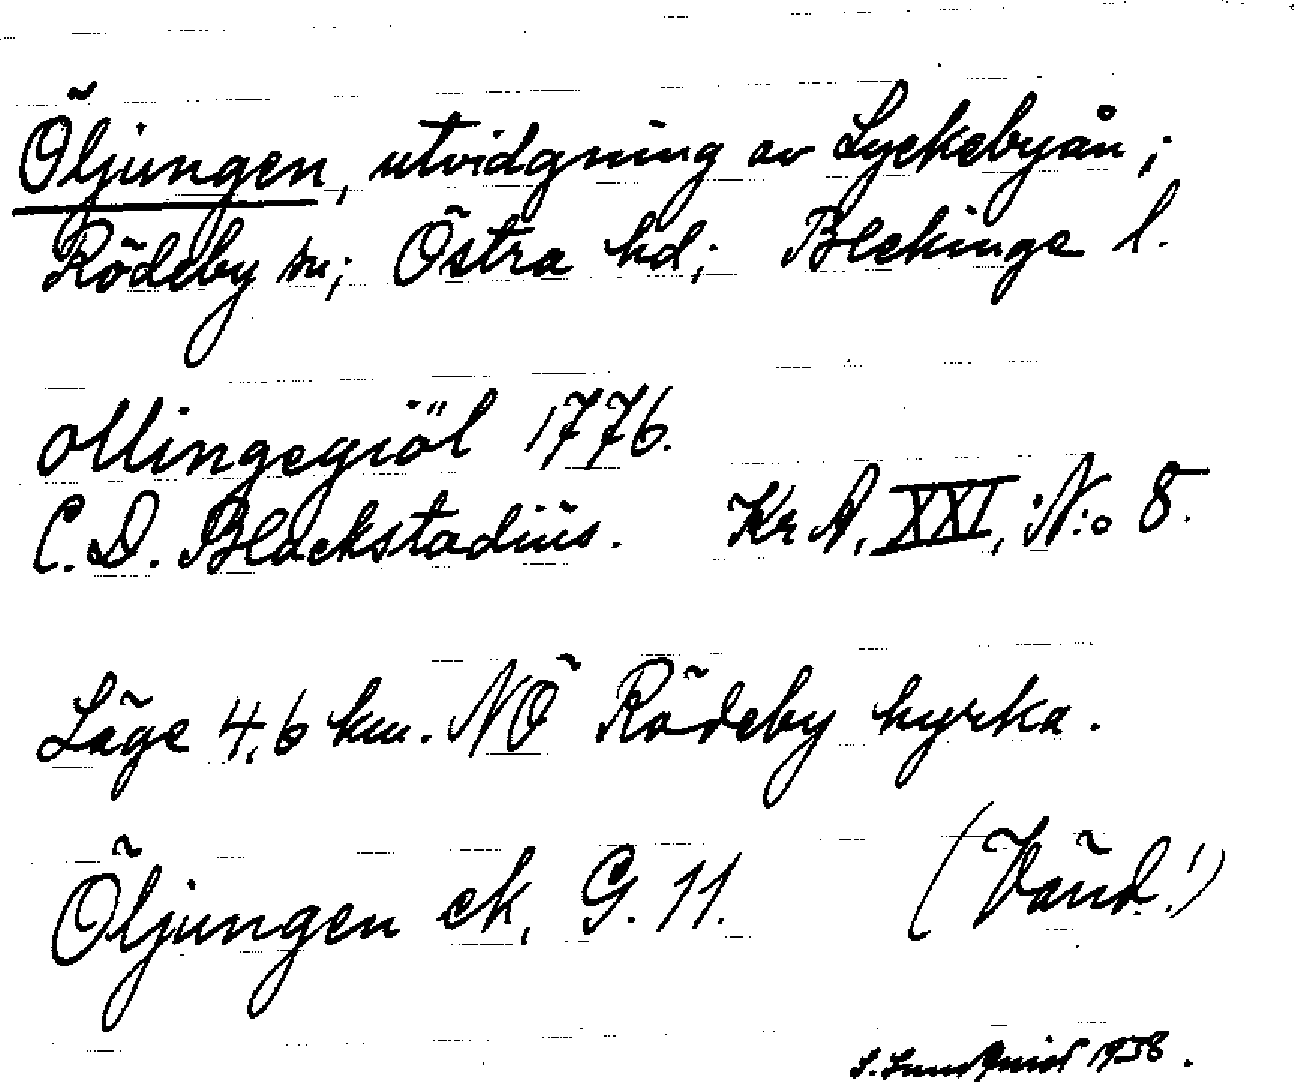 Öljungen, utvidgning av Lyckebyån;
Rödeby sn; Östra hd; Blekinge l.
Ollingegiöl 1776.
C. D. Blackstadius. Kr A, XXI, N:o 8.
Läge 4,6 km. NÖ Rödeby kyrka.
Öljungen ek, G. 11. (Vänd!)
S. Lundquist 1938.